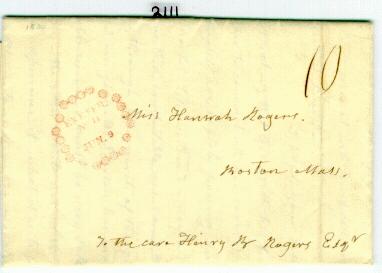 2111
10
EXETER
N.H
JUN. 9
Miss Hannah Rogers.
Boston Mass.
To the care Henry B Rogers Esqr